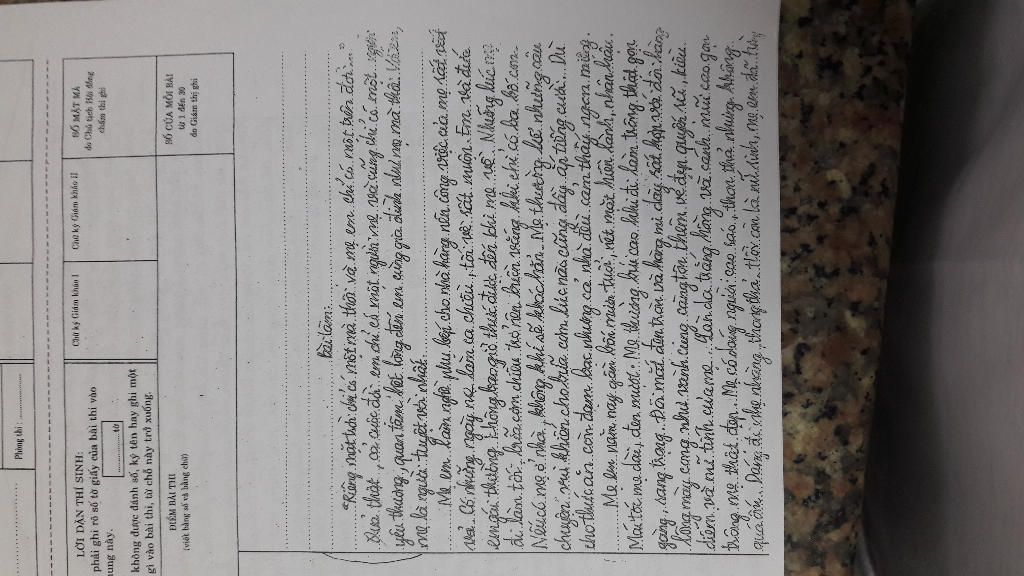 Phòng thi :
LỜI DẶN THÍ SINH:
phải ghi rõ số tờ giấy của bài thi vào
ung này.
tờ
không được đánh số, ký tên hay ghi một
gì vào bài thi, từ chỗ này trở xuống.
Chữ ký Giám khảo I
Chữ ký Giám khảo II
SỐ MẬT MÃ
do Chủ tịch Hội đồng
chấm thi ghi
ĐIỂM BÀI THI
(viết bằng số và bằng chữ)
SỐ CỦA MỖI BÀI
từ 1 đến 30
do Giám thị ghi
Bài làm:
"Riêng mặt trời chỉ có một mà thôi và mẹ em chỉ có một trên đời..."
Quả thật, cả cuộc đời em chỉ có một người mẹ và cũng chỉ có một người
yêu thương, quan tâm hết lòng đến em cùng gia đình như mẹ mà thôi! Với em,
mẹ là người tuyệt vời nhất.
Mẹ em làm nghề phụ bếp cho nhà hàng nên công việc của mẹ rất vất
vả. Có những ngày mẹ làm ca chiều, tối về rất muộn. Em và đứa
em gái thường không bao giờ thức được đến khi mẹ về. Những lúc mẹ
đi làm tối, bữa cơm chiều trở nên buồn vắng khi chỉ có ba bố con.
Nếu có mẹ ở nhà, không khí sẽ khác hẳn. Mẹ thường kể những câu
chuyện vui khiến cho bữa cơm lúc nào cũng đầy ắp tiếng cười. Dù
cho thức ăn còn đạm bạc nhưng cả nhà đều cảm thấy ngon miệng.
Mẹ em năm nay gần bốn mươi tuổi, nét mặt hiền lành, nhân hậu.
Mái tóc mẹ dài, đen mượt. Mẹ thường búi cao khi đi làm trông thật gọn
gàng, sang trọng. Đôi mắt đen tròn và hàng mi dày rất hợp với đôi hàng
lông mày cong như vành cung càng tôn thêm vẻ đẹp quyến rũ, kiều
diễm mà nữ tính của mẹ... Làn da trắng hồng và cánh mũi cao gọn
trông mẹ thật đẹp... Mẹ có dáng người cao ráo, thon thả nhưng không
quá gầy. Dáng đi nhẹ nhàng, thong thả. Hồi còn là nữ sinh, mẹ em đã từng